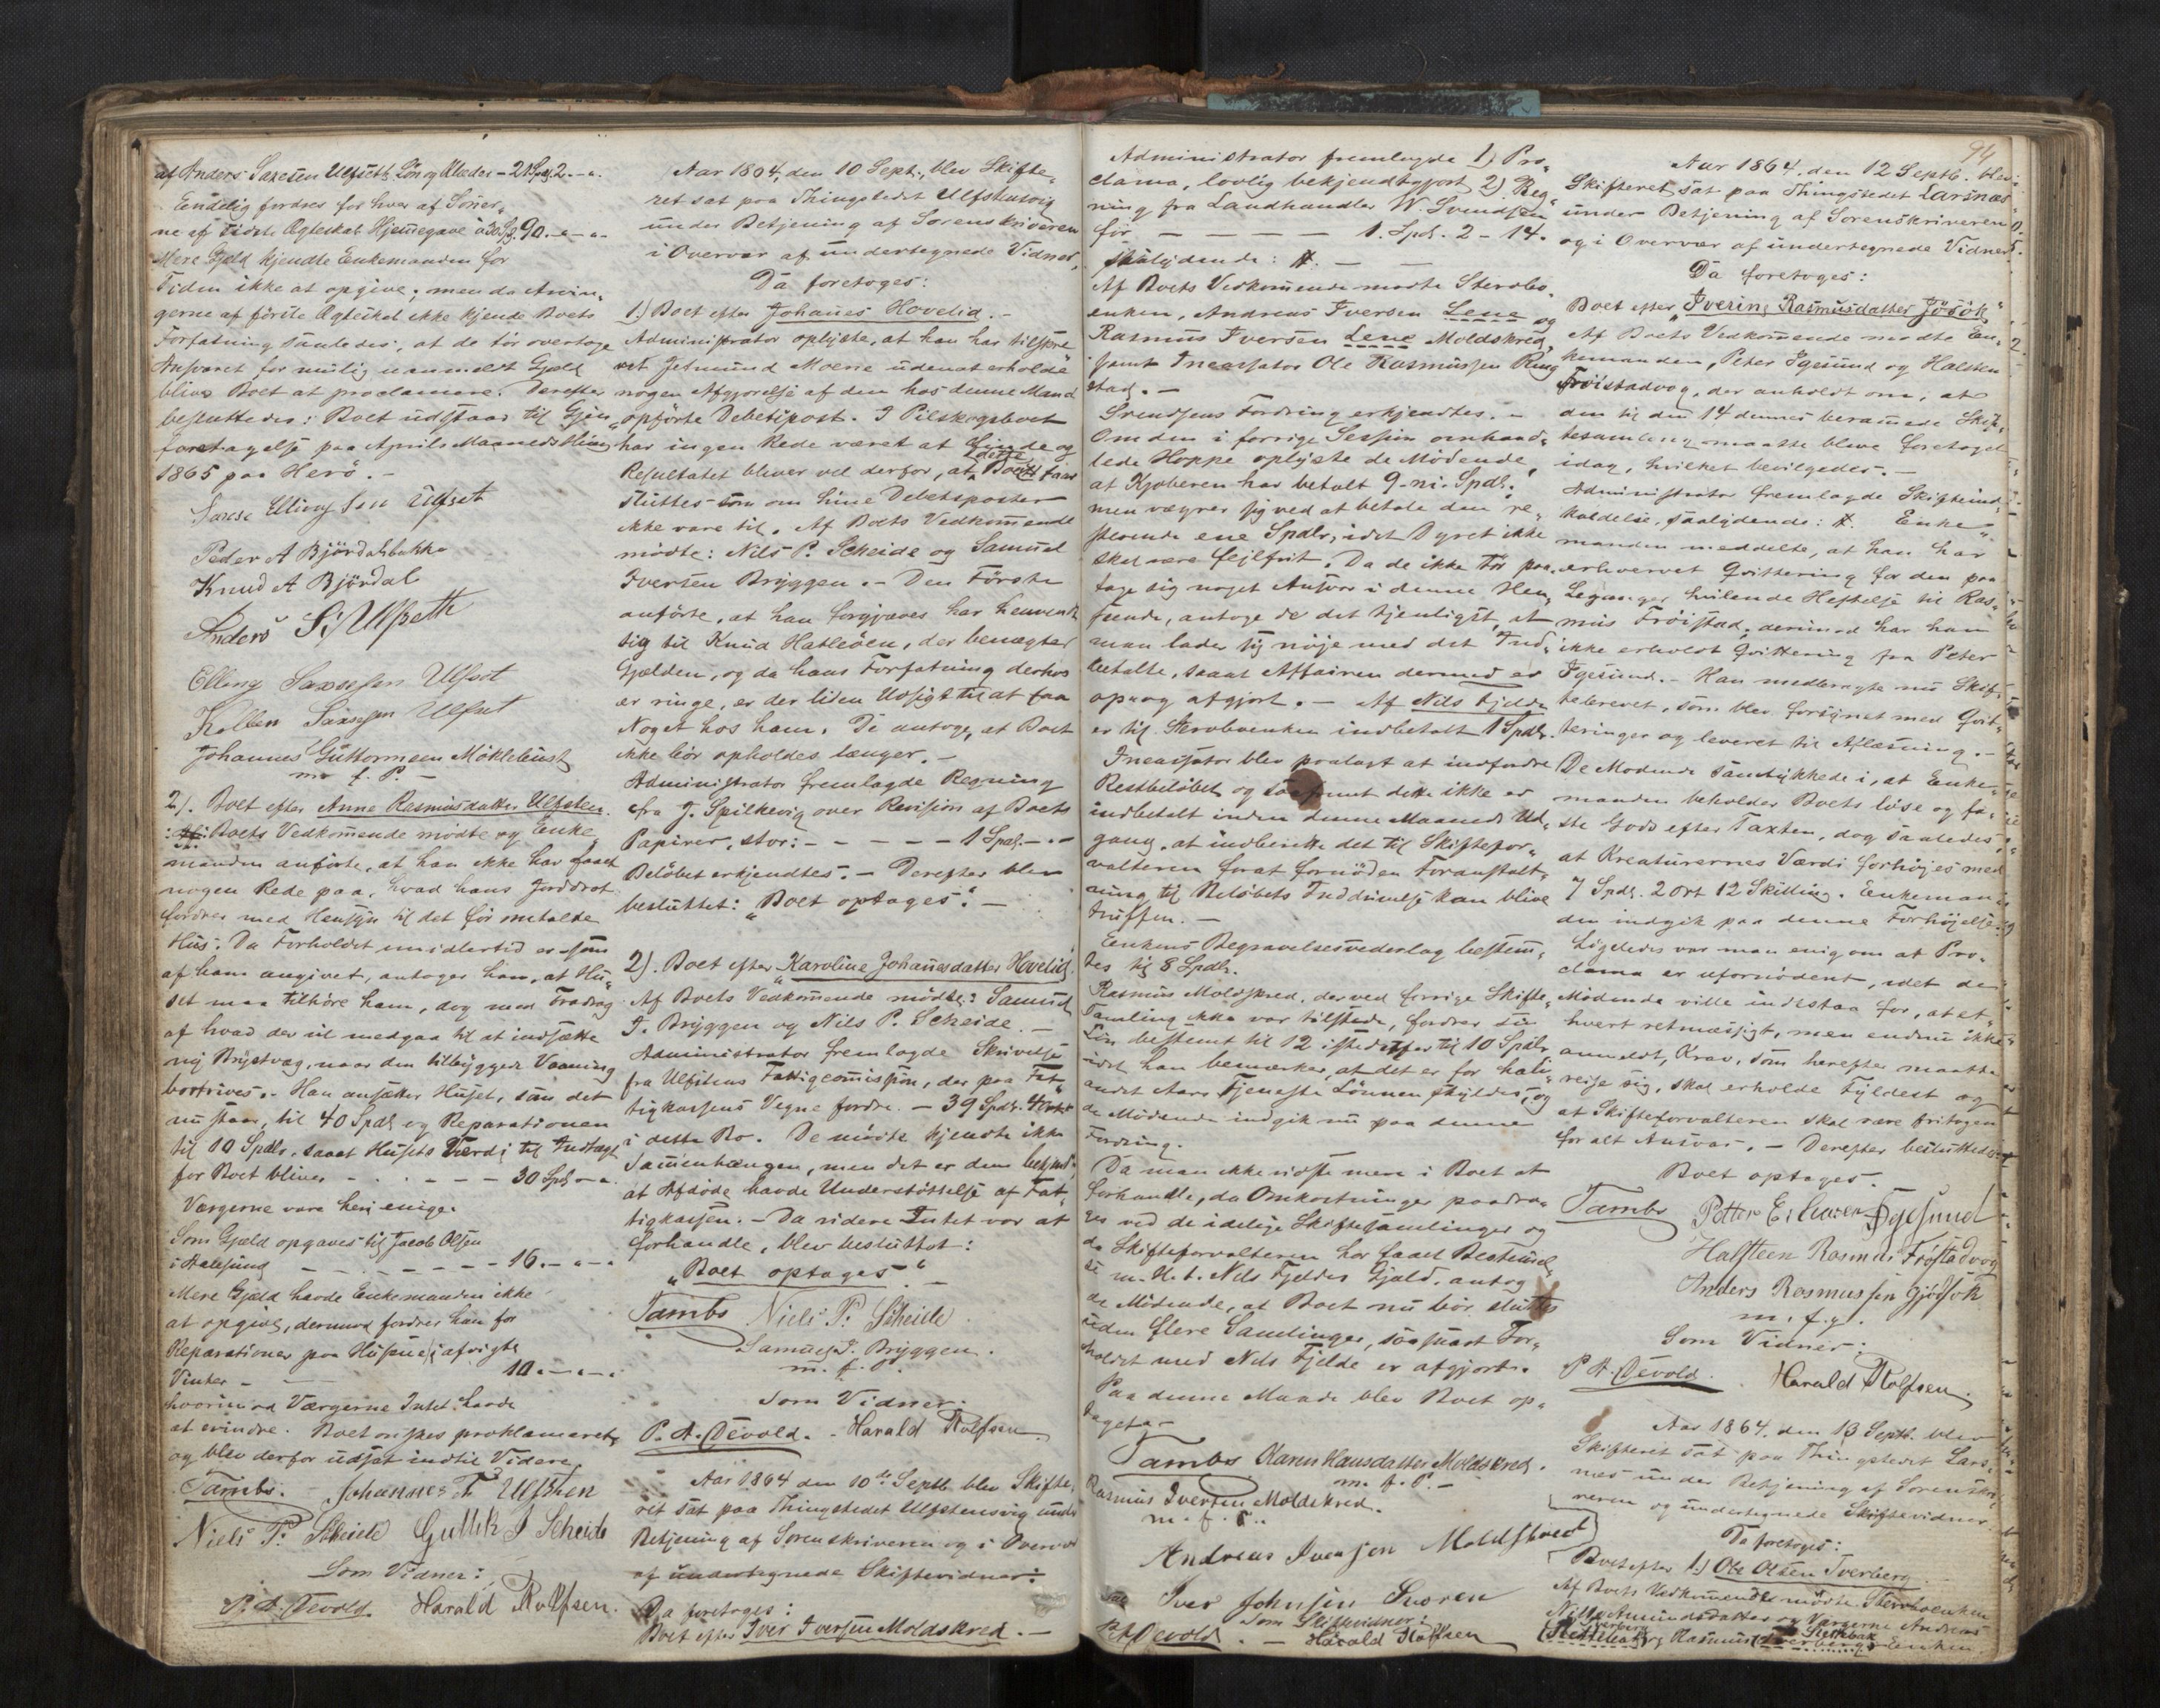 af Anders Saxesen Ulfseth Løn og Klæder - 21 Spd. 2. - „.
Endelig fordres for hver af Søner-
ne af sidste Ægteskab Hjemmegave à 30 Spd. 90. - „ - „.
Mere Gjeld kjendte Enkemanden for
Tiden ikke at opgive; men da Arvin-
gerne af første Ægteskab ikke kjende Boets
Forfatning saaledes, at de tør overtage
Ansvaret for mulig uanmeldt Gjeld
blive Boet at proclamere. Derefter
besluttedes: Boet udstaar til Gjen-
foretagelse paa Aprils Maaneds
1865 paa Herø. -
Saxse Ellingsen Ulfset
Peder A Bjørdalsbakke
Knud A Bjørdal
Anders S. Ulfseth
Elling Saxsesen Ulfset
Kolben Saxsesen Ulfset
Johannes Guttormsen Møklebust
m. f. P. -
2). Boet efter Anne Rasmusdatter Ulfsten.
Af Boets Vedkommende mødte og Enke
manden anførte, at han ikke har faaet
nogen Rede paa, hvad hans Jorddrot
fordrer med Hensyn til det før omtalte
Hus. Da Forholdet imidlertid er som
af ham angivet, antager han, at Hu-
set maa tilhøre ham, dog med Fradrag
af hvad der vil medgaa til at indsætte
ny Brystvæg, naar den tilbyggede Vaaning
bortrives. - Han ansætter Huset, som det
nu staar, til 40 Spd. og Reparationen
til 10 Spdlr. saaat Husets Værdi til Indtægt
for Boet bliver - - - - - 30 Spd. - „.
Værgerne vare heri enige.
Som Gjæld opgaves til Jacob Olsen
i Aalesund - - - - - - - 16. - „ - „.
Mere Gjæld havde Enkemanden ikke
at opgive, derimod fordrer han for
Reparationer paa Husene i afvigte
Vinter - - 10. - „ - „.
hvorimod Værgerne Intet havde
at erindre. Boet ønskes proklameret,
og blev derfor udsat indtil Videre.
Tambs. Johannes T Ulfsten
Niels P. Scheide Gullik J Scheide
Som Vidner:
P. A. Devold. Harald Rolfsen.
Aar 1864, den 10 Sept., blev Skifte-
ret sat paa Thingstedet Ulfstensvig
under Betjening af Sorenskriveren
i Overvær af undertegnede Vidner,
Da foretoges:
1). Boet efter Johannes Hovelid. -
Administrator oplyste, at han har tilskre-
vet Jetmund Moere uden at erholde
nogen Afgjørelse af den hos denne Mand
opførte Debetspost. I Pilskogsboet
har ingen Rede været at finde og
Resultatet bliver vel derfor, at dette Boet faar
sluttes som om hine Debetsposter
ikke vare til. Af Boets Vedkommende
mødte: Nils P. Scheide og Samuel
Iversen Bryggen. - Den Første
anførte, at han forgjæves har henvendt
sig til Knud Hatleøen, der benægter
Gjælden, og da hans Forfatning derhos
er ringe, er der liden Udsigt til at faa
Noget hos ham. De antoge, at Boet
ikke bør opholdes længer. -
Administrator fremlagde Regning
fra J. Spilkevig over Revision af Boets
Papirer, stor: - - - - - 1 Spd. - „ - „
Beløbet erkjendtes. - Derefter blev
besluttet: „Boet optages". -
2). Boet efter „Karoline Johannesdatter Hovelid.
Af Boets Vedkommende mødte: Samuel
I. Bryggen og Nils P. Scheide. -
Administrator fremlagde Skrivelse
fra Ulfstens Fattigcommission, der paa Fat-
tigkassens Vegne fordrer - 39 Spdr. 4 Ort
i dette Bo. De mødte kjendte ikke
Sammenhængen, men det er dem bekjendt,
at Afdøde havde Understøttelse af Fat-
tigkassen. - Da videre Intet var at
forhandle, blev besluttet:
„Boet optages". -
Tambs Niels P. Scheide
Samuel I. Bryggen.
m. f. P.
Som Vidner:
P. A. Devold. - Harald Rolfsen
Aar 1864 den 10de Septb. blev Skifte-
ret sat paa Thingstedet Ulfstensvig under
Betjening af Sorenskriveren og i Overvær
af undertegnede Skiftevidner:
Da foretoges:
Boet efter Iver Iversen Moldskred. -
Administrator fremlagde 1) Pro-
clama, lovlig bekjendtgjort 2) Reg-
ning fra Landhandler W. Svendsen
for - - - - - 1. Spd. 2 - 14.
saalydende: #. - -
Af Boets Vedkommende mødte Stervbo-
enken, Andreas Iversen Lene og
Rasmus Iversen Lene Moldskred,
samt Incassator Ole Rasmussen Ring
stad. -
Svendsens Fordring erkjendtes. -
Om den i forrige Session omhand-
lede Hoppe oplyste de Mødende,
at Kjøberen har betalt 9 - ni - Spdl.
men vægrer sig ved at betale den re-
sterende ene Spdlr, idet Dyret ikke
skal være feilfrit. Da de ikke tør paa-
tage sig noget Ansvar i denne Hen-
seende, antoge de det tjenligst, at
man lader sig nøje med det Ind-
betalte, saaat Affairen dermed er
op og afgjort. - Af Nils Fjelde
er til Stervboenken indbetalt 1 Spdlr.
Incassator blev paalagt at indfordre
Restbeløbet og saafremt dette ikke er
indbetalt inden denne Maaneds Ud-
gang, at indberette det til Skiftefor-
valteren forat fornøden Foranstalt-
ning til Beløbets Inddrivelse kan blive
truffen. -
Enkens Begravelsesvederlag bestem-
tes til 8 Spdlr.
Rasmus Moldskred, der ved forrige Skifte-
samling ikke var tilstede, fordrer sin
Løn bestemt til 12 istedetfor til 10 Spdlr,
idet han bemærker, at det er for halv-
andet Aars Tjeneste Lønnen skyldes, og
de Mødende indgik nu paa denne
Fordring.
Da man ikke vidste mere i Boet at
forhandle, da Omkostninger paadra-
ges ved de idelige Skiftesamlinger og
da Skifteforvalteren har faaet Bestemmel-
se m. H. t. Nils Fjeldes Gjæld, antog
de Mødende, at Boet nu bør sluttes
uden flere Samlinger, saasnart For-
holdet med Nils Fjelde er afgjort.
Paa denne Maade blev Boet op-
taget. -
Tambs Karen Hansdatter Moldskred.
m. f. P. -
Rasmus Iversen Moldskred.
m. f. P.
Andreas Iversen Moldskred
Iver Johnsen
Som Skiftevidner:
P. A. Devold. - Harald Rolfsen
94
Aar 1864, den 12 Septb. blev
Skifteret sat paa Thingstedet Larsnæs
under Betjening af Sorenskriveren
og i Overvær af undertegnede Vidner
Da foretoges:
Boet efter „Iverine Rasmusdatter Jøsok"
Af Boets Vedkommende mødte En-
kemanden, Peter Egesund og Halsten
Frøistadvog, der anholdt om, at
den til den 14 dennes berammede Skif-
tesamling maatte blive foretaget
idag, hvilket bevilgedes. -
Administrator fremlagde Skifteind-
kaldelse, saalydende: #. Enke-
manden meddelte, at han har
erhvervet Qvittering for den paa
Legangen hvilende Heftelse til Ras-
mus Frøistad, derimod har han
ikke erholdt Qvittering fra Peter
Egesund. - Han medbragte nu Skif-
tebrevet, som blev forsynet med Qvit-
teringer og leveret til Aflæsning. -
De Mødende samtykkede i, at Enke-
manden beholder Boets løse og fa-
ste Gods efter Taxten, dog saaledes,
at Kreaturernes Værdi forhøjes med
7 Spdl. 2 Ort 12 Skilling. Enkeman-
den indgik paa denne Forhøjelse.
Ligeledes var man enig om at Pro-
clama er ufornødent, idet de
Mødende ville indestaa for, at et-
hvert retmæssigt, men endnu ikke
anmeldt, Krav, som herefter maatte
rejse sig, skal erholde Fyldest og
at Skifteforvalteren skal være fritagen
for alt Ansvar. - Derefter besluttedes:
Boet optages.
Tambs Petter E. Egesund
Halsteen Rasmus Frøstadvog
Anders Rasmussen Gjødsok
m. f. P.
Som Vidner:
P A. Devold. Harald Rolfsen
Aar 1864, den 13 Septb. blev
Skifteret sat paa Thingstedet Lars-
næs under Betjening af Sorenskri-
veren og undertegnede Skiftevidner.
Da foretoges:
Boet efter 1.) Ole Olsen Tverberg.
Af Boets Vedkommende mødte Stervboenken
Amundsdatter og Værgerne Andreas
Rasmus Enken